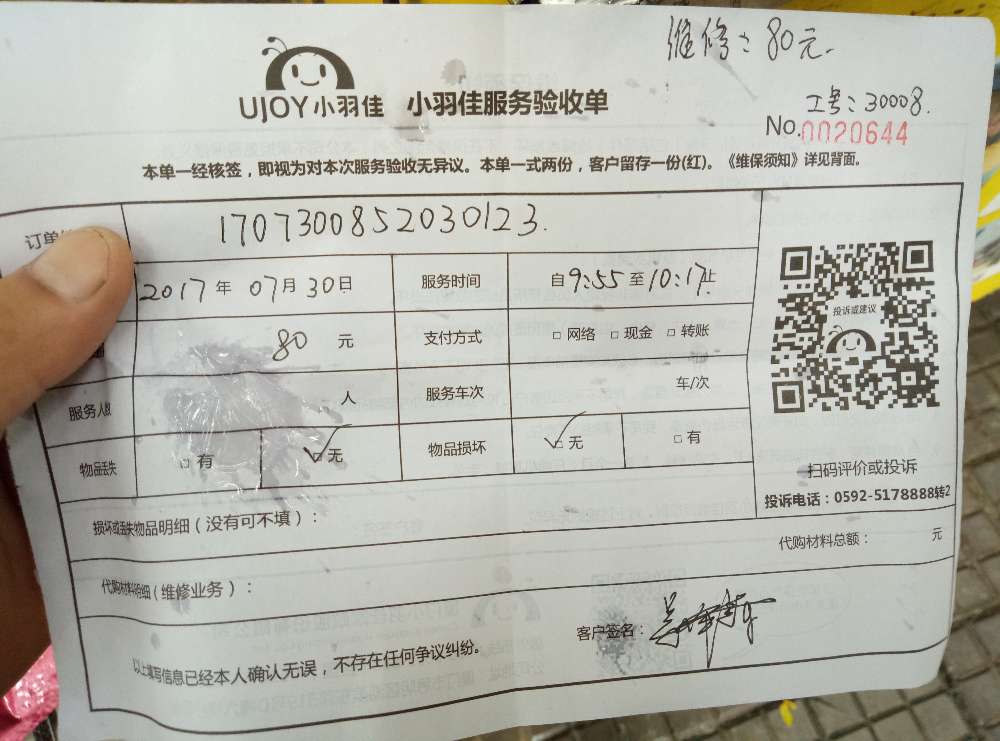 维修：80元.
UJOY小羽佳 小羽佳服务验收单
工号：30008.
No.0020644
本单一经核签，即视为对本次服务验收无异议。本单一式两份，客户留存一份(红)。《维保须知》详见背面。
订单 1707300852030123.
2017年 07月 30日 服务时间 自9:55至10:17止
投诉或建议
80 元 支付方式 □ 网络 □ 现金 □ 转账
服务人数 人 服务车次 车/次
物品丢失 □ 有 ☑ 无 物品损坏 ☑ 无 □ 有
扫码评价或投诉
投诉电话：0592-5178888转2
损坏或丢失物品明细（没有可不填）：
代购材料总额： 元
代购材料明细（维修业务）：
客户签名：
以上填写信息已经本人确认无误，不存在任何争议纠纷。